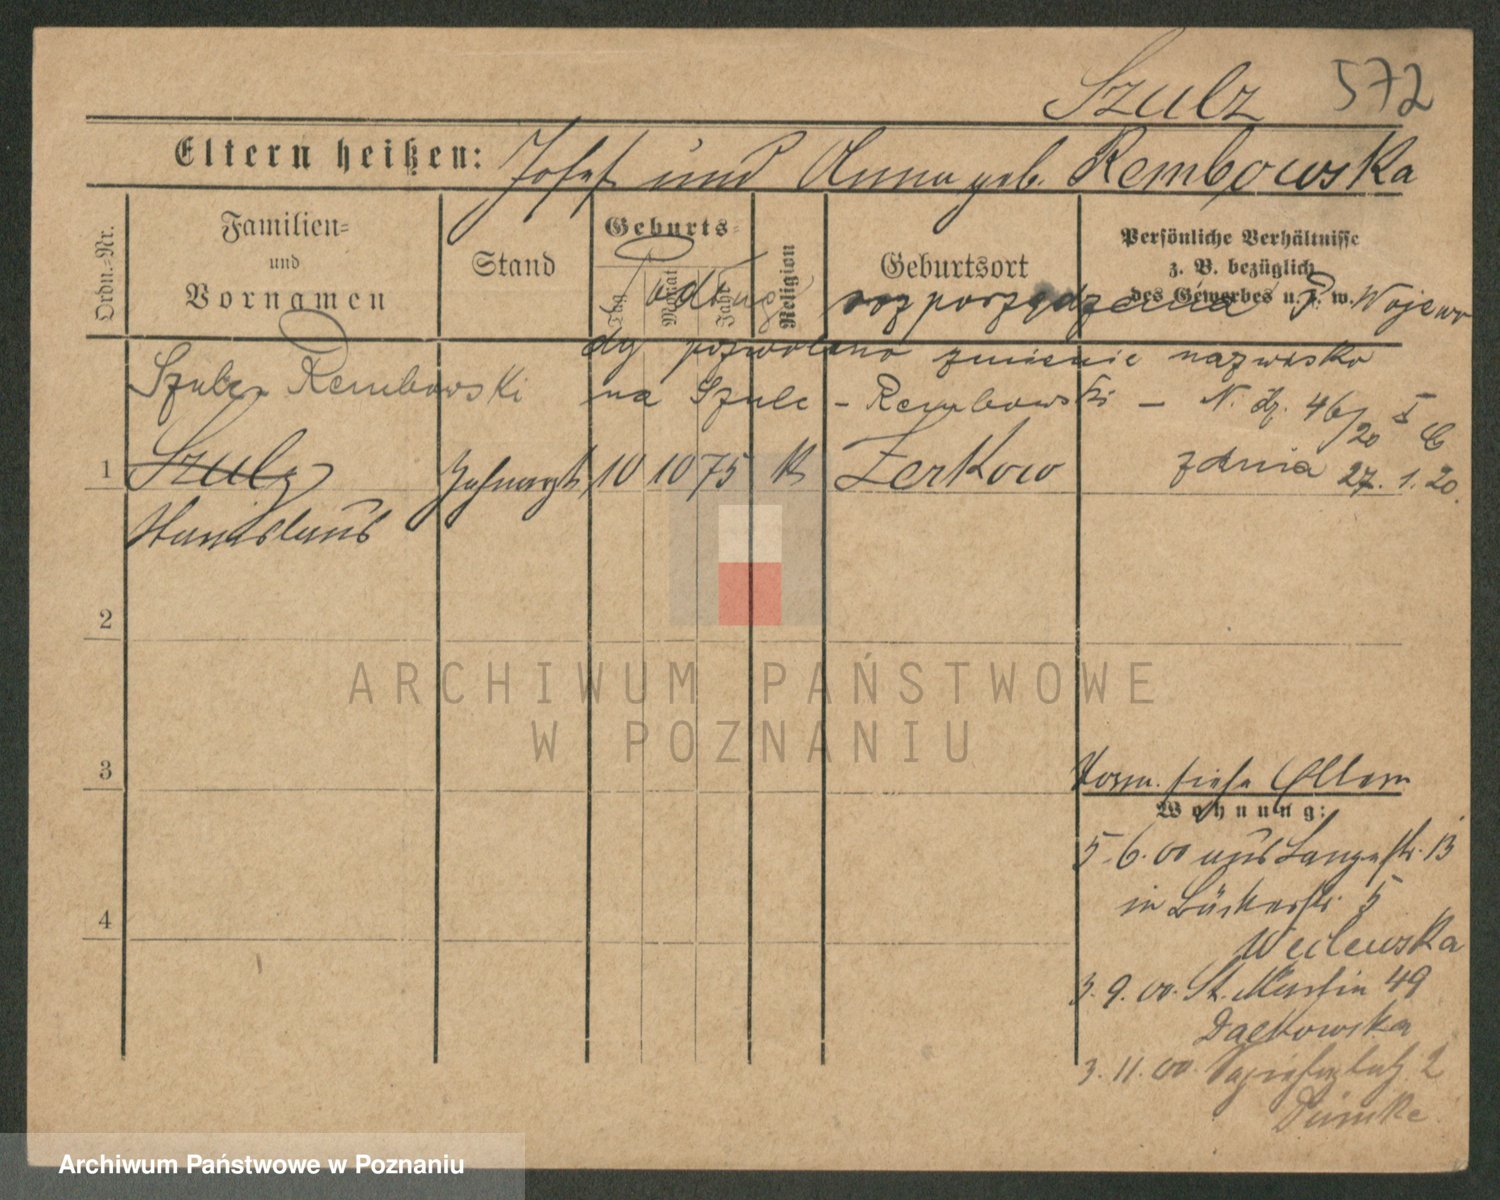 Szulz 572
Eltern heißen: Josef und Anna geb. Rembowska
Ordn.-Nr.
Familien-
und
Vornamen
Stand
Geburts-
Tag
Monat
Jahr
Religion
Geburtsort
Persönliche Verhältnisse
z. B. bezüglich
des Gewerbes u. s. w.
Podług rozporządzenia P. Wojewo
dy pozwolono zmienić nazwisko
na Szulc - Rembowski - N. dz. 46/20 I C
z dnia 27.1.20.
Szulc-Rembowski
1 Szulz Zahnarzt 10 10 75 K Zerkow
Stanislaus
2
3
4
ARCHIWUM PAŃSTWOWE
W POZNANIU
Vorm. siehe Eltern
Wohnung:
5.6.00 aus Langestr. 13
in Bäckerstr. 5
3.9.00. St. Martin 49
3.11.00. 2
Archiwum Państwowe w Poznaniu